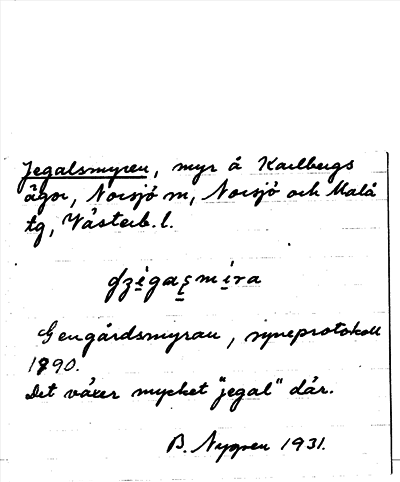 Jegalsmyren, myr å Karlbergs
ägor, Norsjö sn, Norsjö och Malå
tg, Västerb. l.
Gengårdsmyran, syneprotokoll
1890.
Det växer mycket "jegal" där.
B. Nygren 1931.